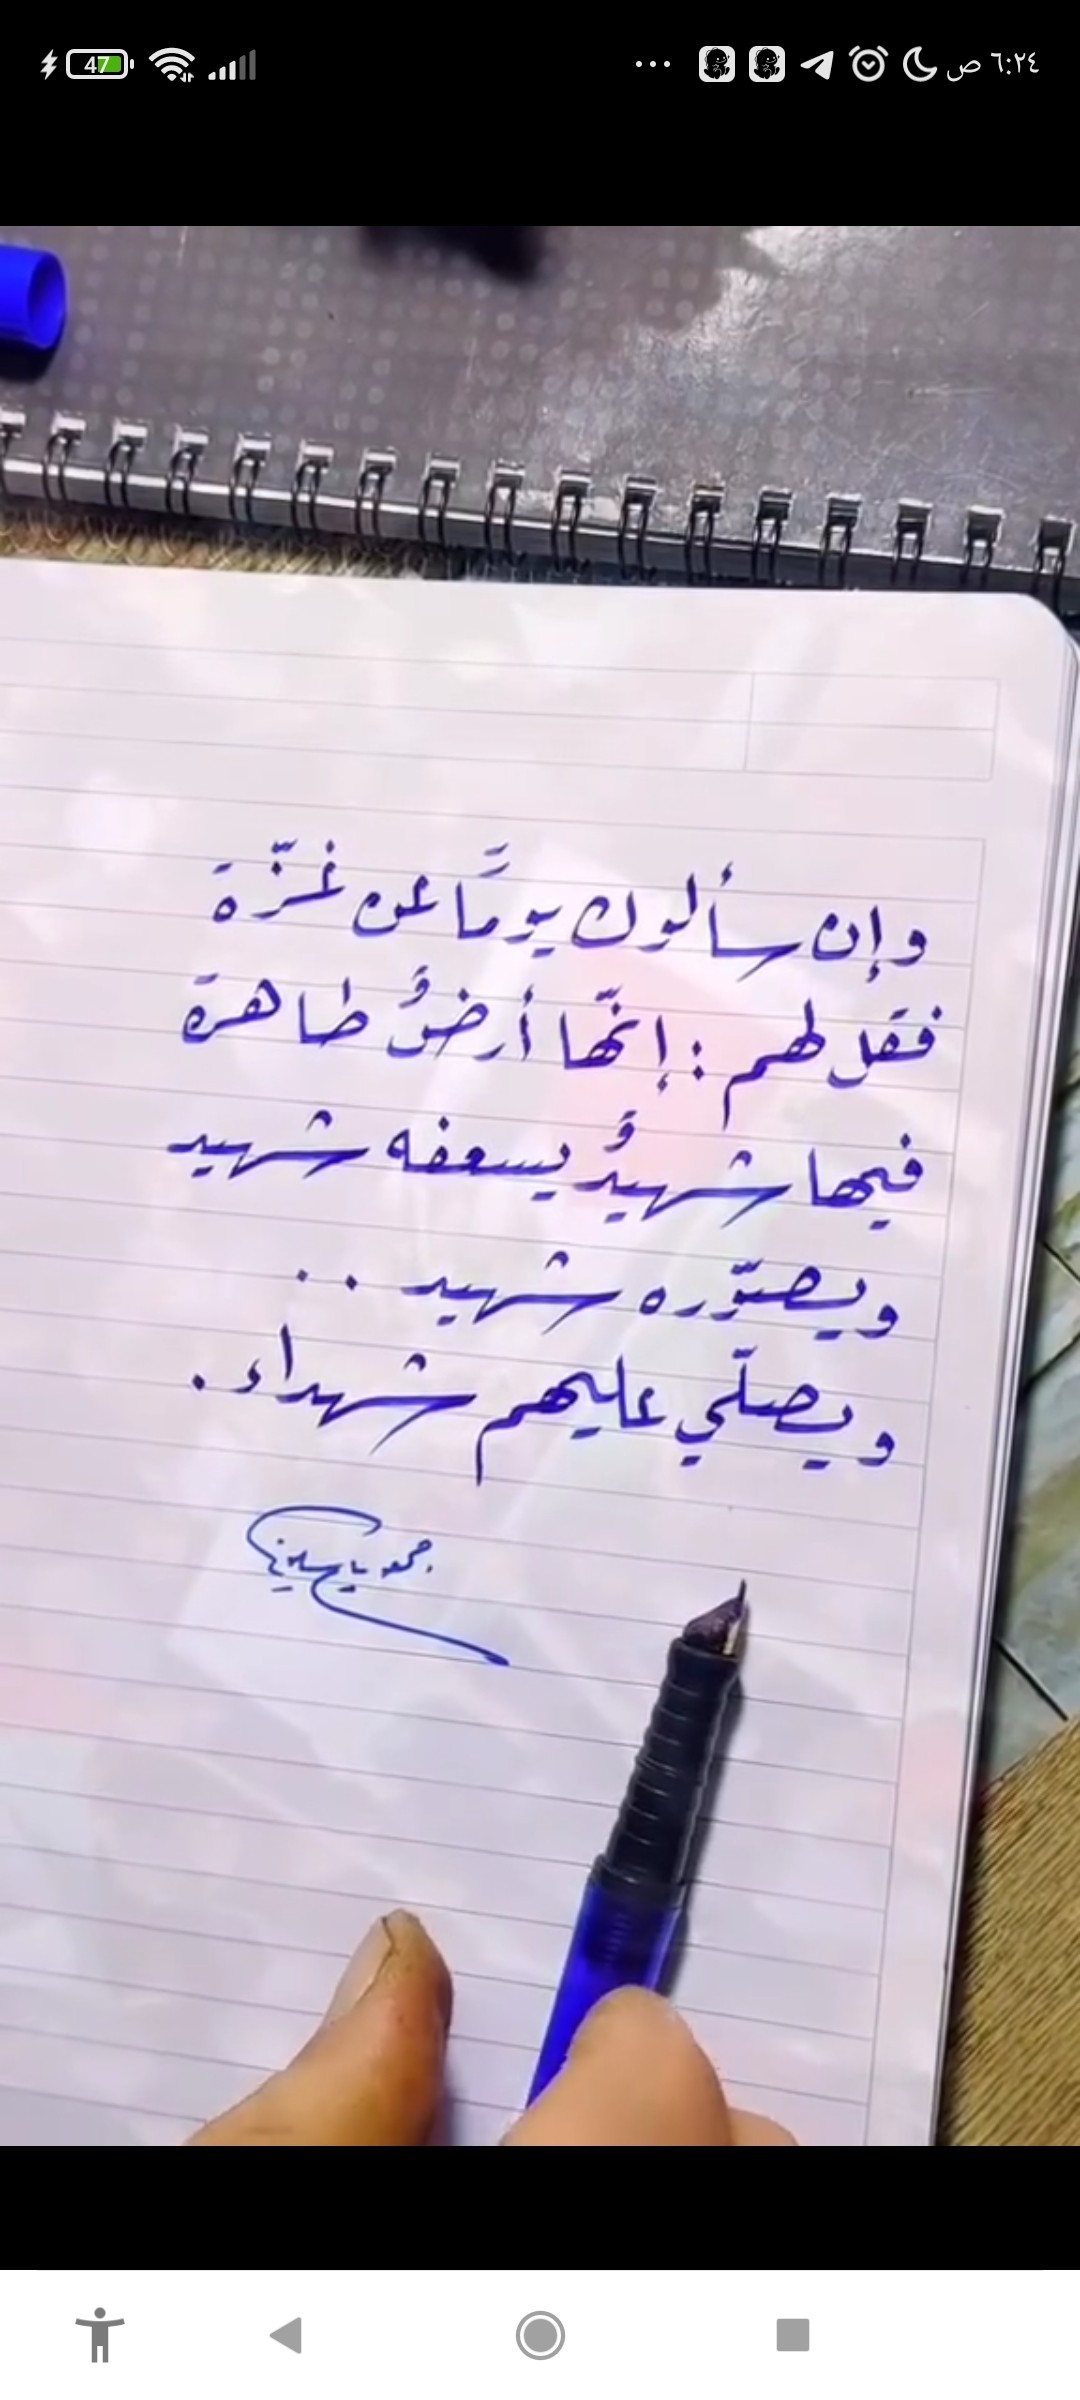 47
٦:٢٤ ص
وإن سألوك يومًا عن غزّة
فقل لهم : إنّها أرضٌ طاهرة
فيها شهيدٌ يسعفه شهيد
ويصوّره شهيد ..
ويصلّي عليهم شهداء .